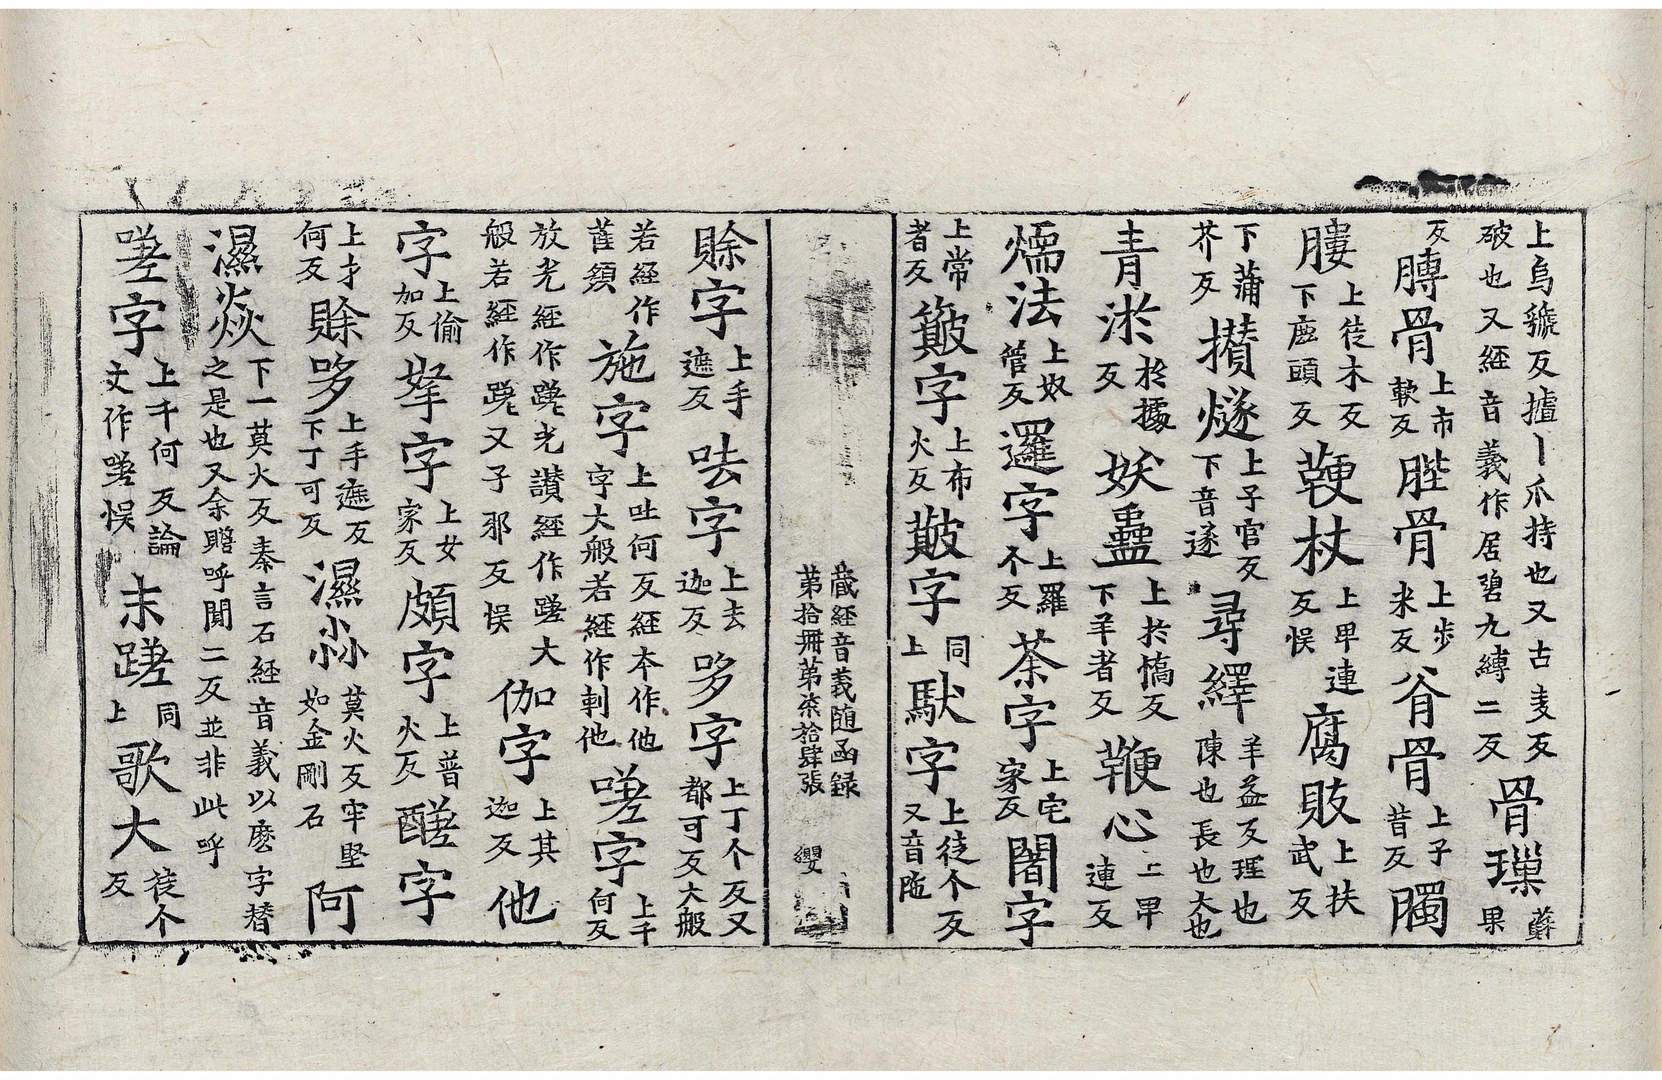 上烏虢反攎丨爪持也又古麦反破也又經音義作居碧九縛二反骨璅蘇果
反膞骨上市軟反䏶骨上步米反脊骨上子昔反髑
膢上徒木反下盧頭反鞕杖上甲連反悮腐敗上扶武反
下蒲芥反攅燧上子官反下音遂尋繹羊益反理也陳也長也大也
青淤於據反妖蠱上於憍反下羊者反鞭心上甲連反
𤏙法上奴管反邏字上羅个反荼字上宅家反闍字
上常者反簸字上布火反皾字同上馱字上徒个反又音陁
藏經音義随函録第拾冊第柒拾肆張 纓
賒字上手遮反呿字上去迦反哆字上丁个反又都可反大般
若經作舊頦施字上吐何反經本作他字大般若經作剌他嗟字上千何反
放光經作蹉光讃經作蹉大般若經作蹉又子邪反悮伽字上其迦反他
字上偷加反拏字上女家反頗字上普火反醝字
上才何反賒哆上手遮反下丁可反濕𣺫莫火反牢堅如金剛石阿
濕焱下一莫火反秦言石經音義以麽字替之是也又余贍呼閴二反並非此呼
嗟字上千何反論文作嗟悮末蹉同上歌大徒个反